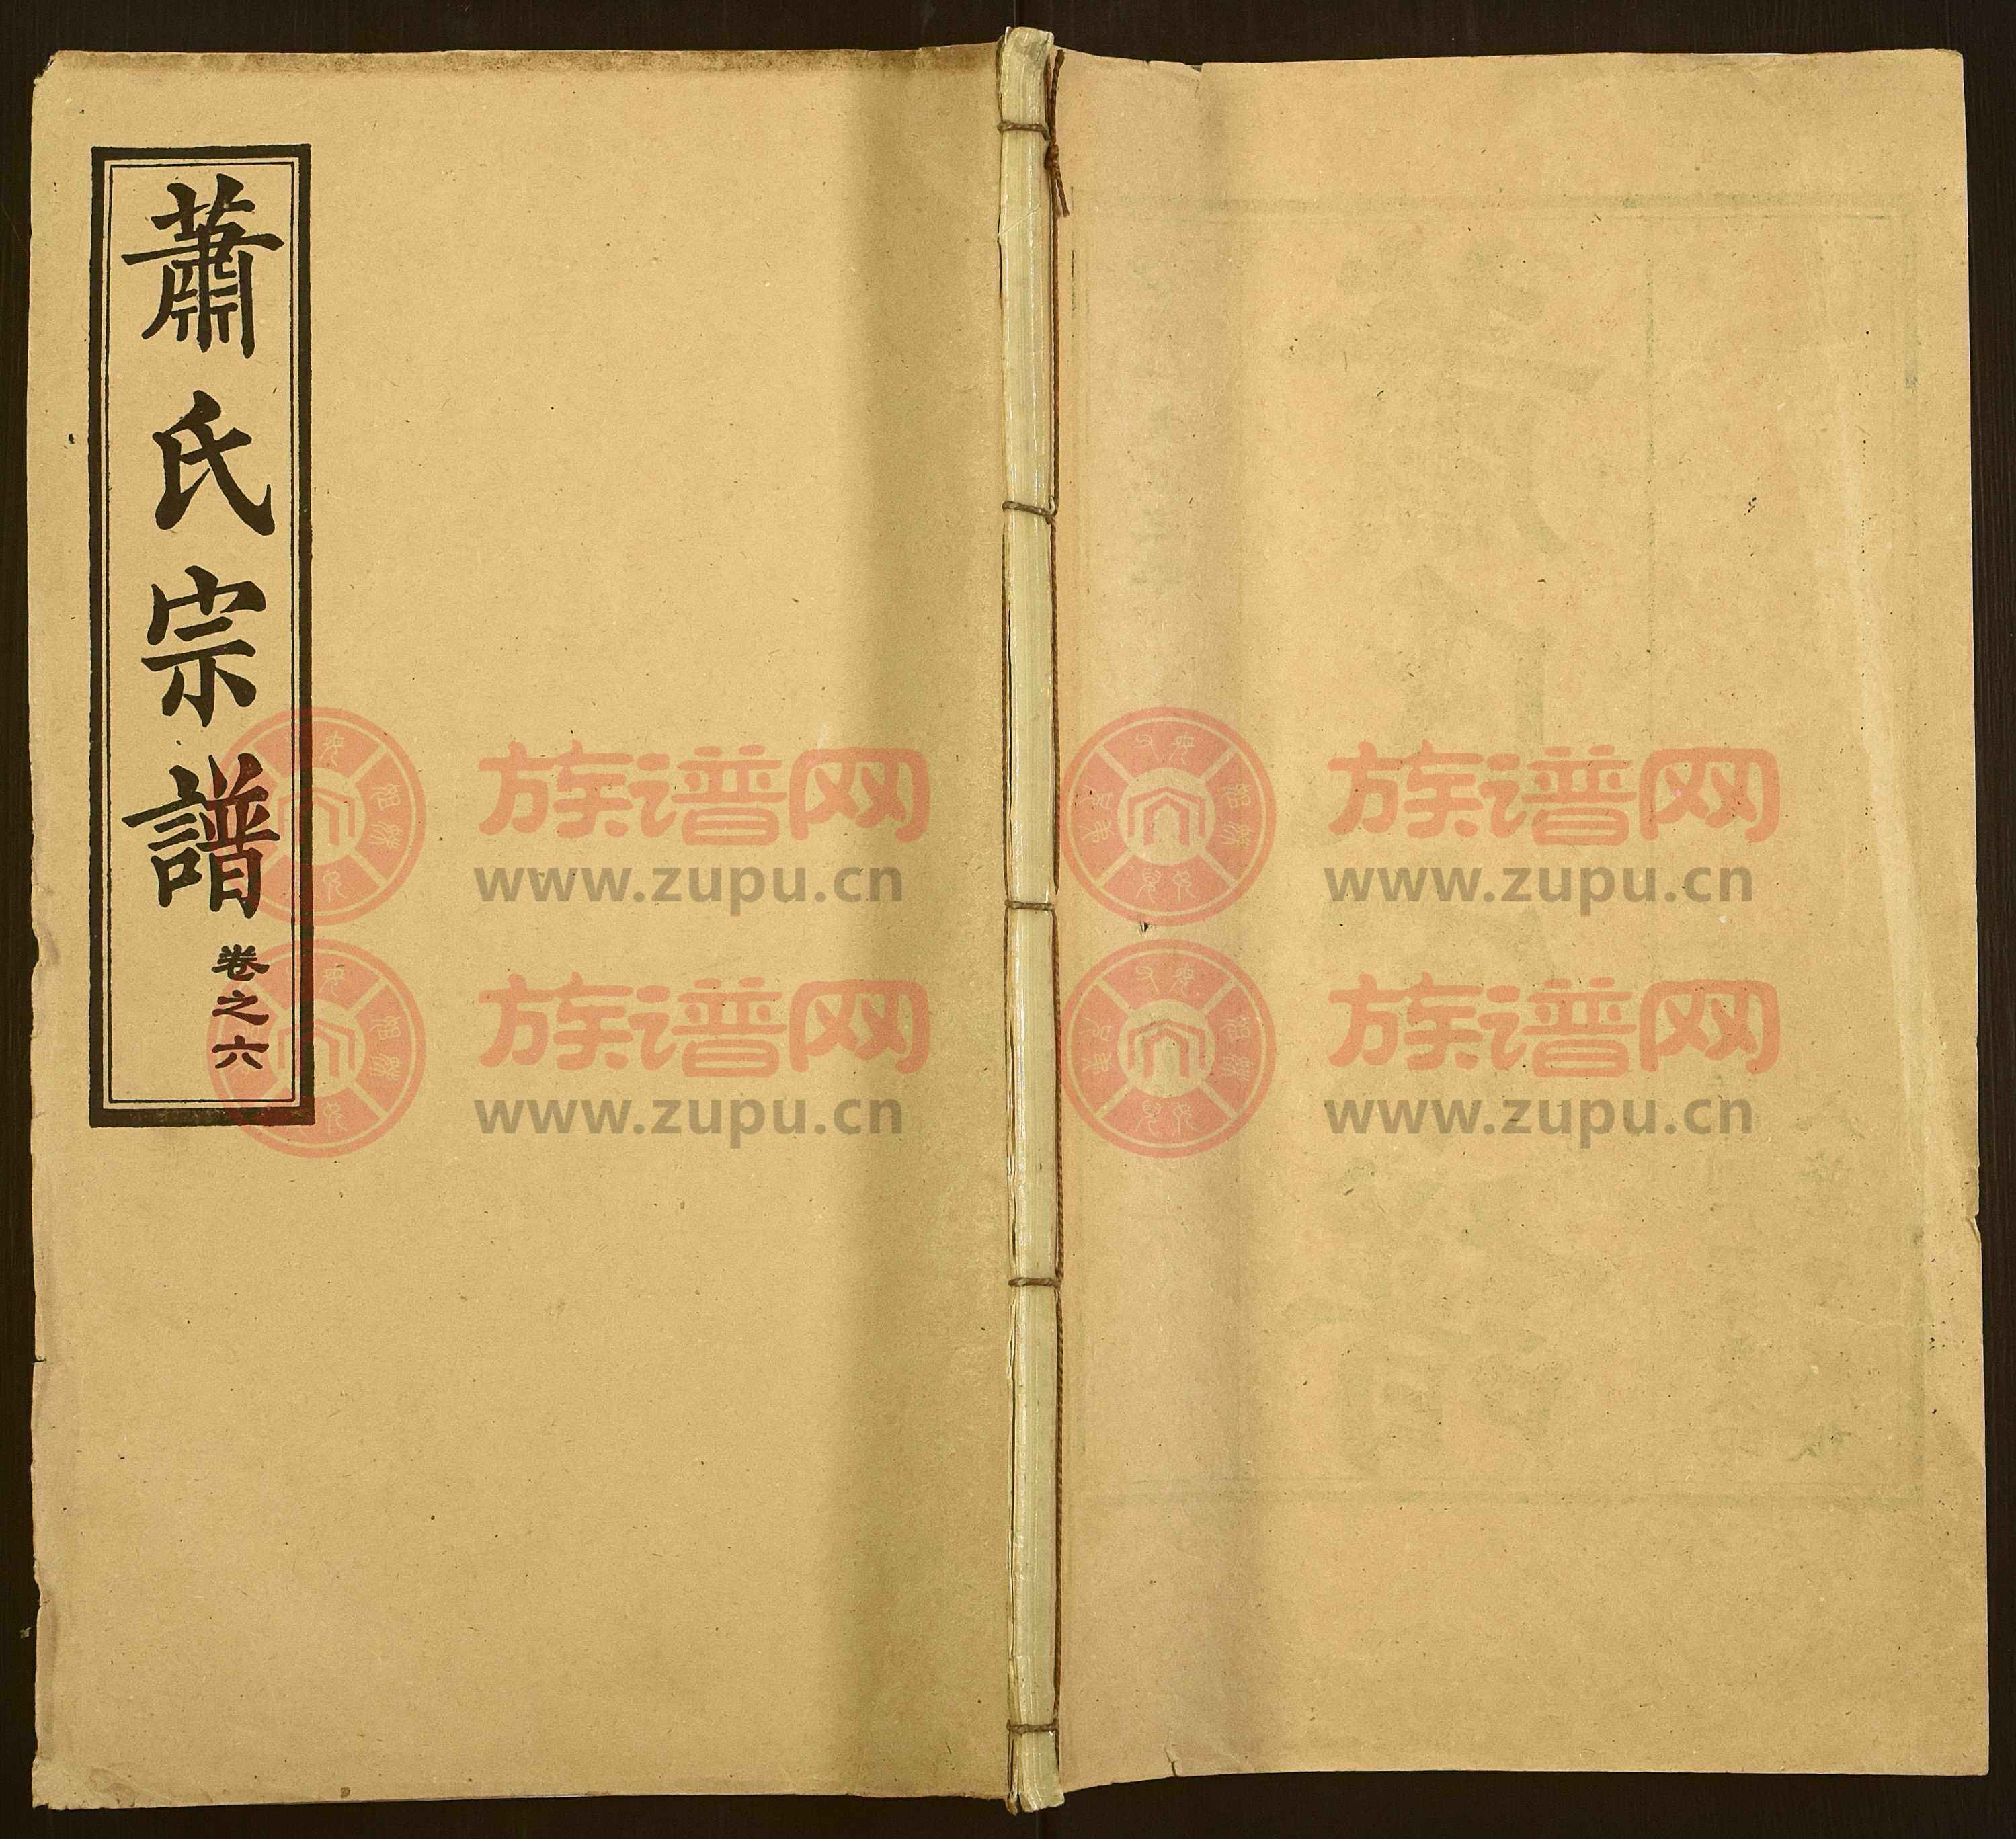 蕭氏宗譜
卷之六
族谱网
www.zupu.cn
族谱网
www.zupu.cn
族谱网
www.zupu.cn
族谱网
www.zupu.cn